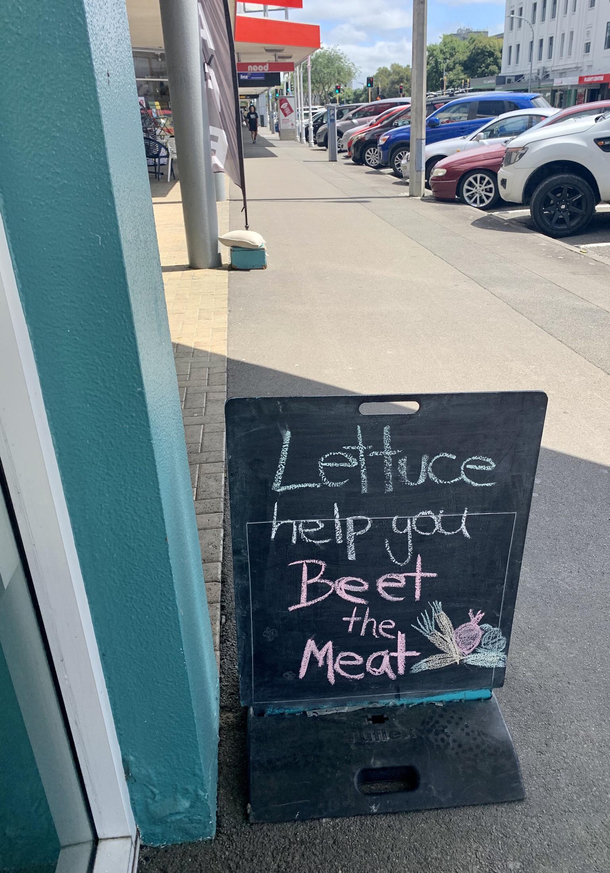 nood
Lettuce
help you
Beet
the
Meat